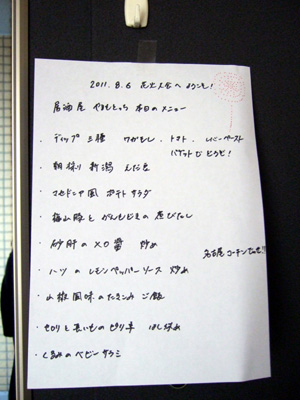 2011.8.6 花火大会へようこそ!
居酒屋 やまもとっち 本日のメニュー
・ディップ 三種 ワカモレ、トマト、レバーペースト
バゲットでどうぞ!
・朝採り 新潟 えだ豆
・マセドニヤ風 ポテトサラダ
・梅山豚と がんもどきの 煮びたし
・砂肝の XO醤 炒め
名古屋コーチンでっせ!!
・ハツの レモンペッパーソース 炒め
・山椒風味の たきこみ ご飯
・セロリと の
・くるみの ベビーサラミ